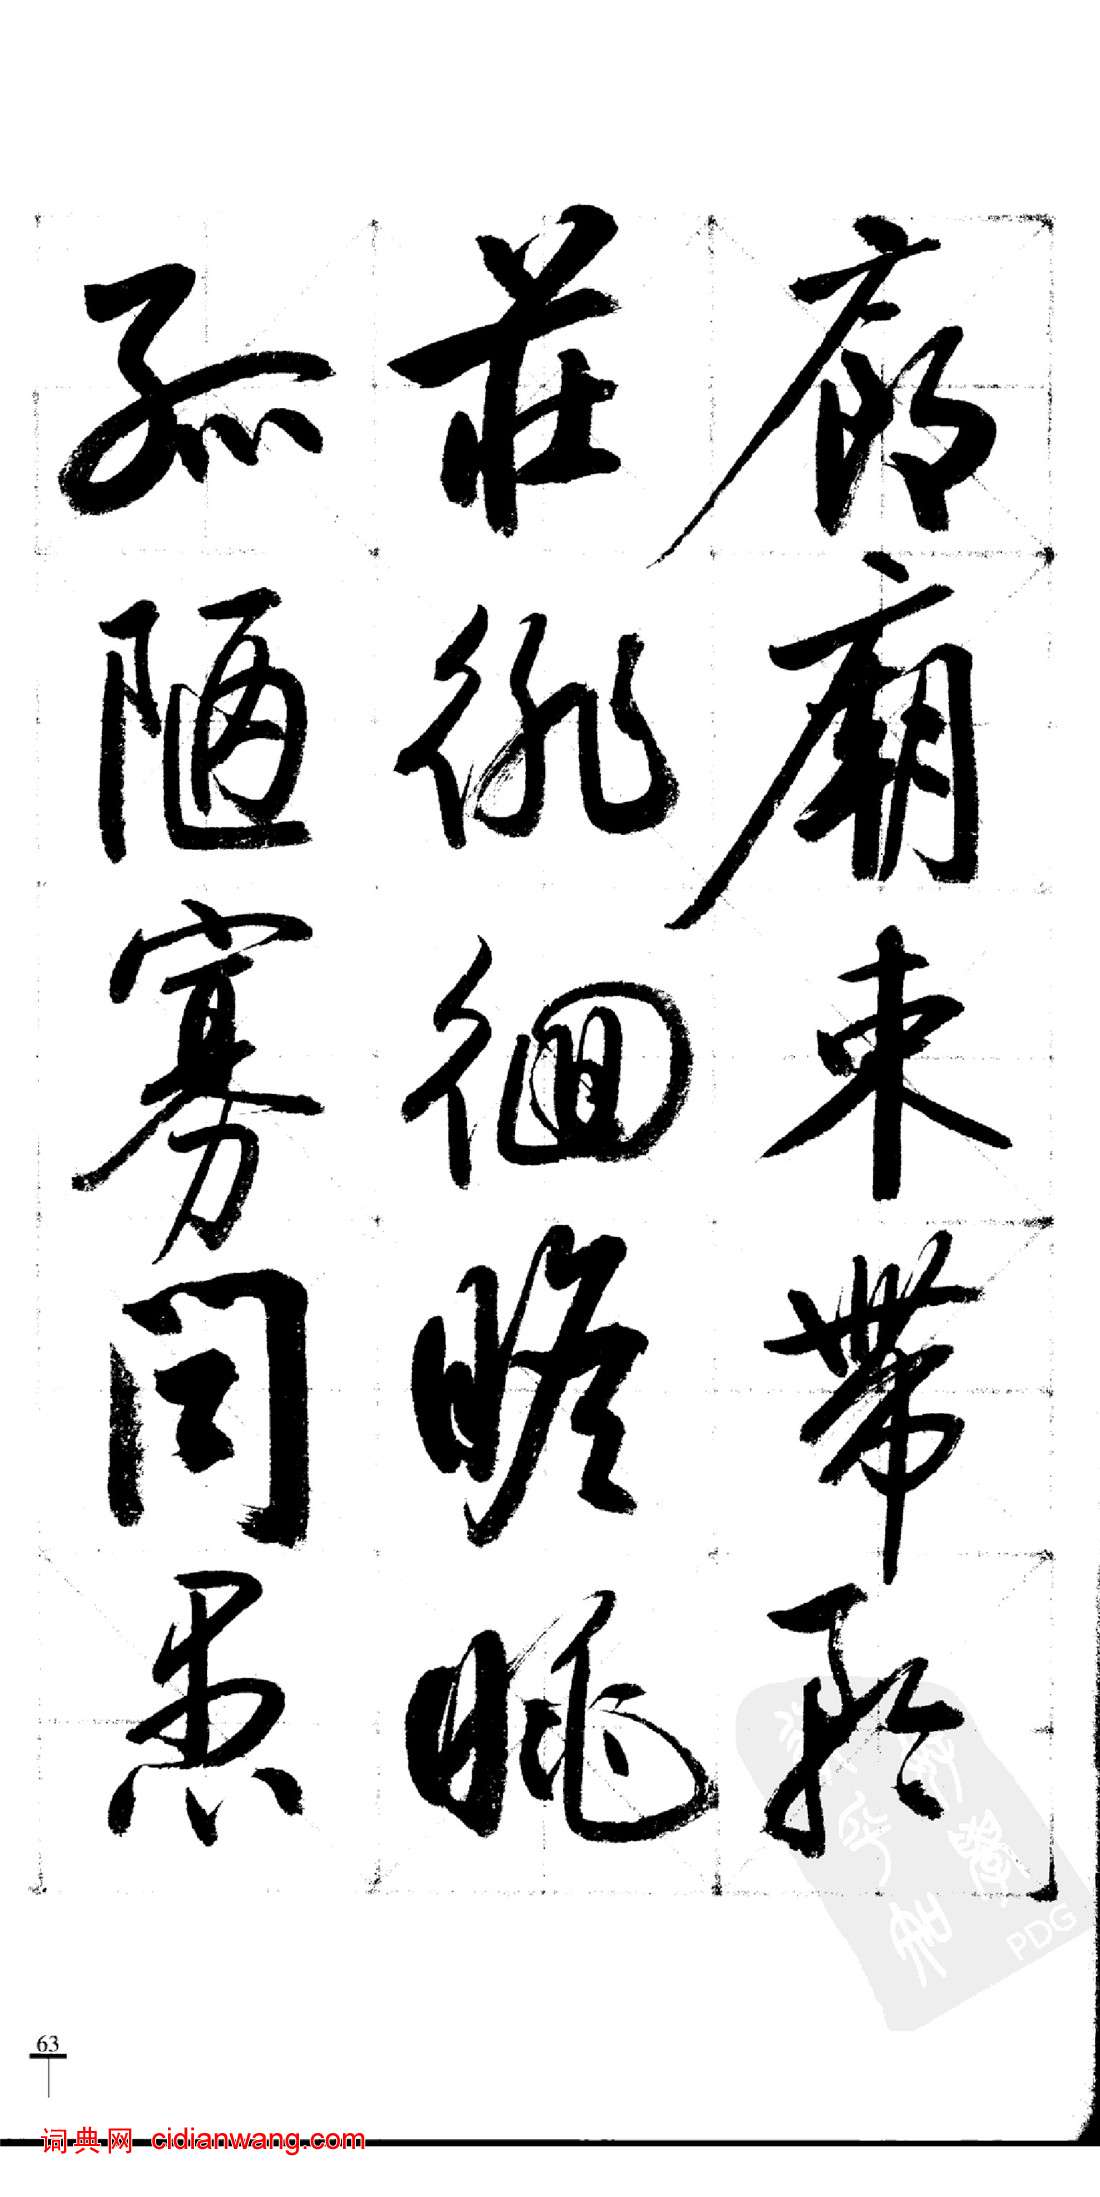 廊廟束帶矜
莊徘徊瞻眺
孤陋寡聞愚
63
词典网 cidianwang.com
PDG